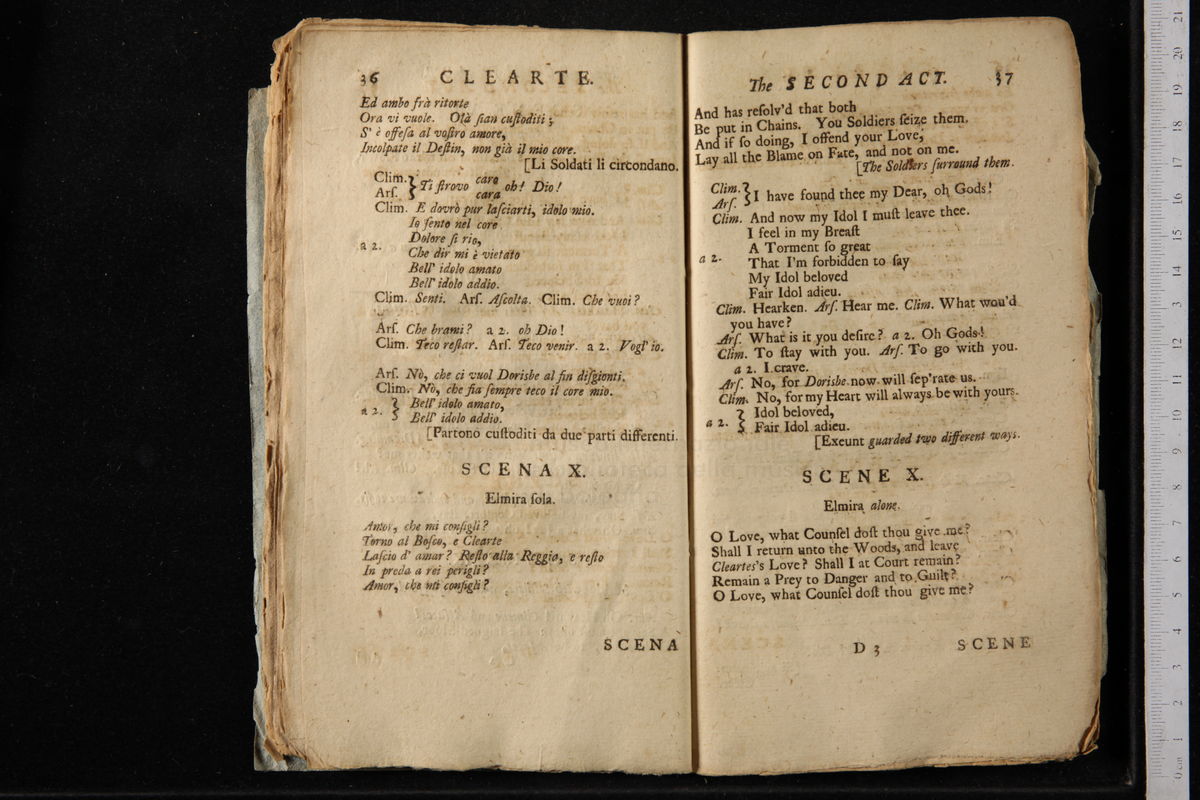 36 CLEARTE.
Ed ambo frà ritorte
Ora vi vuole. Olà ſian cuſtoditi;
S' è offeſa al voſtro amore,
Incolpate il Deſtin, non già il mio core.
[Li Soldati li circondano.
Clim. } Ti ſtrovo caro oh! Dio!
Arſ. } cara
Clim. E dovrò pur laſciarti, idolo mio.
Io ſento nel core
Dolore ſi rio,
a 2. Che dir mi è vietato
Bell' idolo amato
Bell' idolo addio.
Clim. Senti. Arſ. Aſcolta. Clim. Che vuoi?
Arſ. Che brami? a 2. oh Dio!
Clim. Teco reſtar. Arſ. Teco venir. a 2. Vogl' io.
Arſ. Nò, che ci vuol Dorisbe al fin diſgionti.
Clim. Nò, che fia ſempre teco il core mio.
a 2. } Bell' idolo amato,
Bell' idolo addio.
[Partono cuſtoditi da due parti differenti.
SCENA X.
Elmira ſola.
Amor, che mi conſigli?
Torno al Boſco, e Clearte
Laſcio d' amar? Reſto alla Reggia, e reſto
In preda a rei perigli?
Amor, che mi conſigli?
SCENA
The SECOND ACT. 37
And has reſolv'd that both
Be put in Chains. You Soldiers ſeize them.
And if ſo doing, I offend your Love,
Lay all the Blame on Fate, and not on me.
[The Soldiers ſurround them.
Clim. } I have found thee my Dear, oh Gods!
Arſ. }
Clim. And now my Idol I muſt leave thee.
I feel in my Breaſt
A Torment ſo great
a 2. That I'm forbidden to ſay
My Idol beloved
Fair Idol adieu.
Clim. Hearken. Arſ. Hear me. Clim. What wou'd
you have?
Arſ. What is it you deſire? a 2. Oh Gods!
Clim. To ſtay with you. Arſ. To go with you.
a 2. I crave.
Arſ. No, for Dorisbe now will ſep'rate us.
Clim. No, for my Heart will always be with yours.
a 2. } Idol beloved,
Fair Idol adieu.
[Exeunt guarded two different ways.
SCENE X.
Elmira alone.
O Love, what Counſel doſt thou give me?
Shall I return unto the Woods, and leave
Cleartes's Love? Shall I at Court remain?
Remain a Prey to Danger and to Guilt?
O Love, what Counſel doſt thou give me?
D 3 SCENE